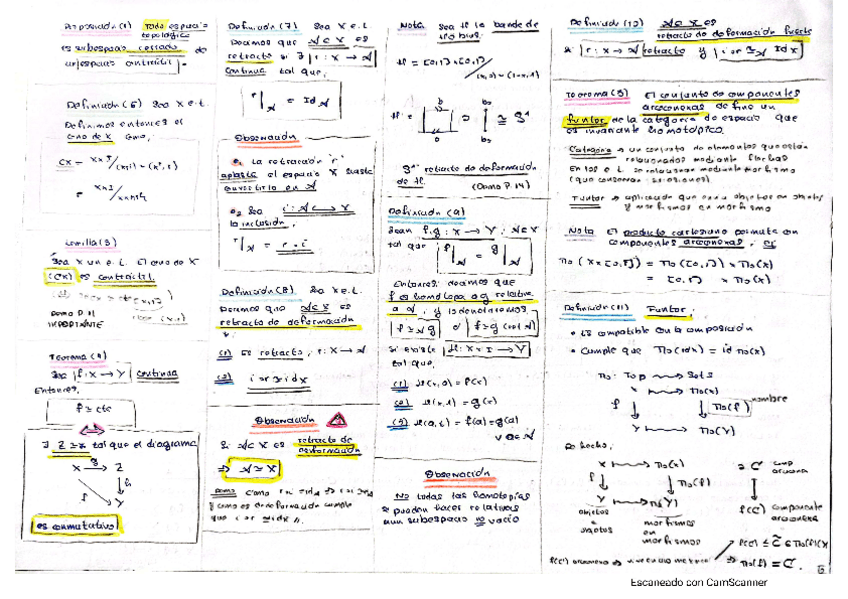 Proposición (1) Todo espacio
topológico
es subespacio cerrado de
un espacio contráctil.
Definición (6) Sea X e.t.
Definimos entonces el
cono de X como,
CX = X×I / (x,1) ~ (x',1)
= X×I / X×{1}
Lemilla (3)
Sea X un e.t. El cono de X
(CX) es contráctil.
Demo P.11
IMPORTANTE
Teorema (4)
Sea f: X → Y continua
Entonces,
f ≃ cte
∃ Z ≃ * tal que el diagrama
X → Z
g
f
h
Y
es conmutativo
Definición (7) Sea X e.t.
Decimos que A ⊂ X es
retracto si ∃ r: X → A
continua tal que,
r|A = Id A
Observación
1. La retracción "r"
aplasta el espacio X hasta
convertirlo en A
2. Sea i: A ↪ X
la inclusión,
r|A = r∘i
Definición (8) Sea X e.t.
Decimos que A ⊂ X es
retracto de deformación
si,
(1) Es retracto, r: X → A
(2) i∘r ≃ idX
Observación
Si A ⊂ X es retracto de
deformación
⇒ A ≃ X
Demo Como r∘i = idA ⇒
y como es de deformación cumple
que i∘r ≃ idX
Nota Sea M la banda de
Möbius.
M = [0,1] × [0,1] / (0,t) ~ (1,1-t)
≃ S¹
S¹ retracto de deformación
de M.
(Demo P.14)
Definición (9)
Sean f,g: X → Y, A ⊂ X
tal que f|A = g|A
Entonces decimos que
f es homótopa a g relativa
a A, y lo denotaremos
f ≃A g o f ≃ g (rel A)
si existe H: X × I → Y
tal que,
(1) H(x,0) = f(x)
(2) H(x,1) = g(x)
(3) H(a,t) = f(a) = g(a)
∀ a ∈ A
Observación
No todas las homotopías
se pueden hacer relativas
a un subespacio no vacío
Definición (10) A ⊂ X es
retracto de deformación fuerte
si r: X → A retracto y i∘r ≃A IdX
Teorema (5) El conjunto de componentes
arcoconexas define un
funtor de la categoría de espacio que
es invariante homotópico.
Categoría → un conjunto de elementos que están
relacionados mediante flechas
En los e.t. se relacionan mediante morfismo
Funtor → aplicación que envía objetos en objetos
y morfismos en morfismo
Nota El producto cartesiano permuta con
componentes arcoconexas.
π₀(X×[0,1]) = π₀([0,1]) × π₀(X)
= [0,1] × π₀(X)
Definición (11) Funtor.
• Es compatible con la composición
• Cumple que π₀(idX) = id π₀(X)
π₀: Top → Sets
X → π₀(X)
f ↓ ↓ π₀(f) nombre
Y → π₀(Y)
De hecho,
X → π₀(X) ∋ C comp arcoconexa
f ↓ ↓ π₀(f) ↓
Y → π₀(Y) f(C) componente
arcoconexa
objetos
a
objetos
morfismos
en
morfismos
f(C) arcoconexo ⇒
π₀(f) = C̃.
Escaneado con CamScanner